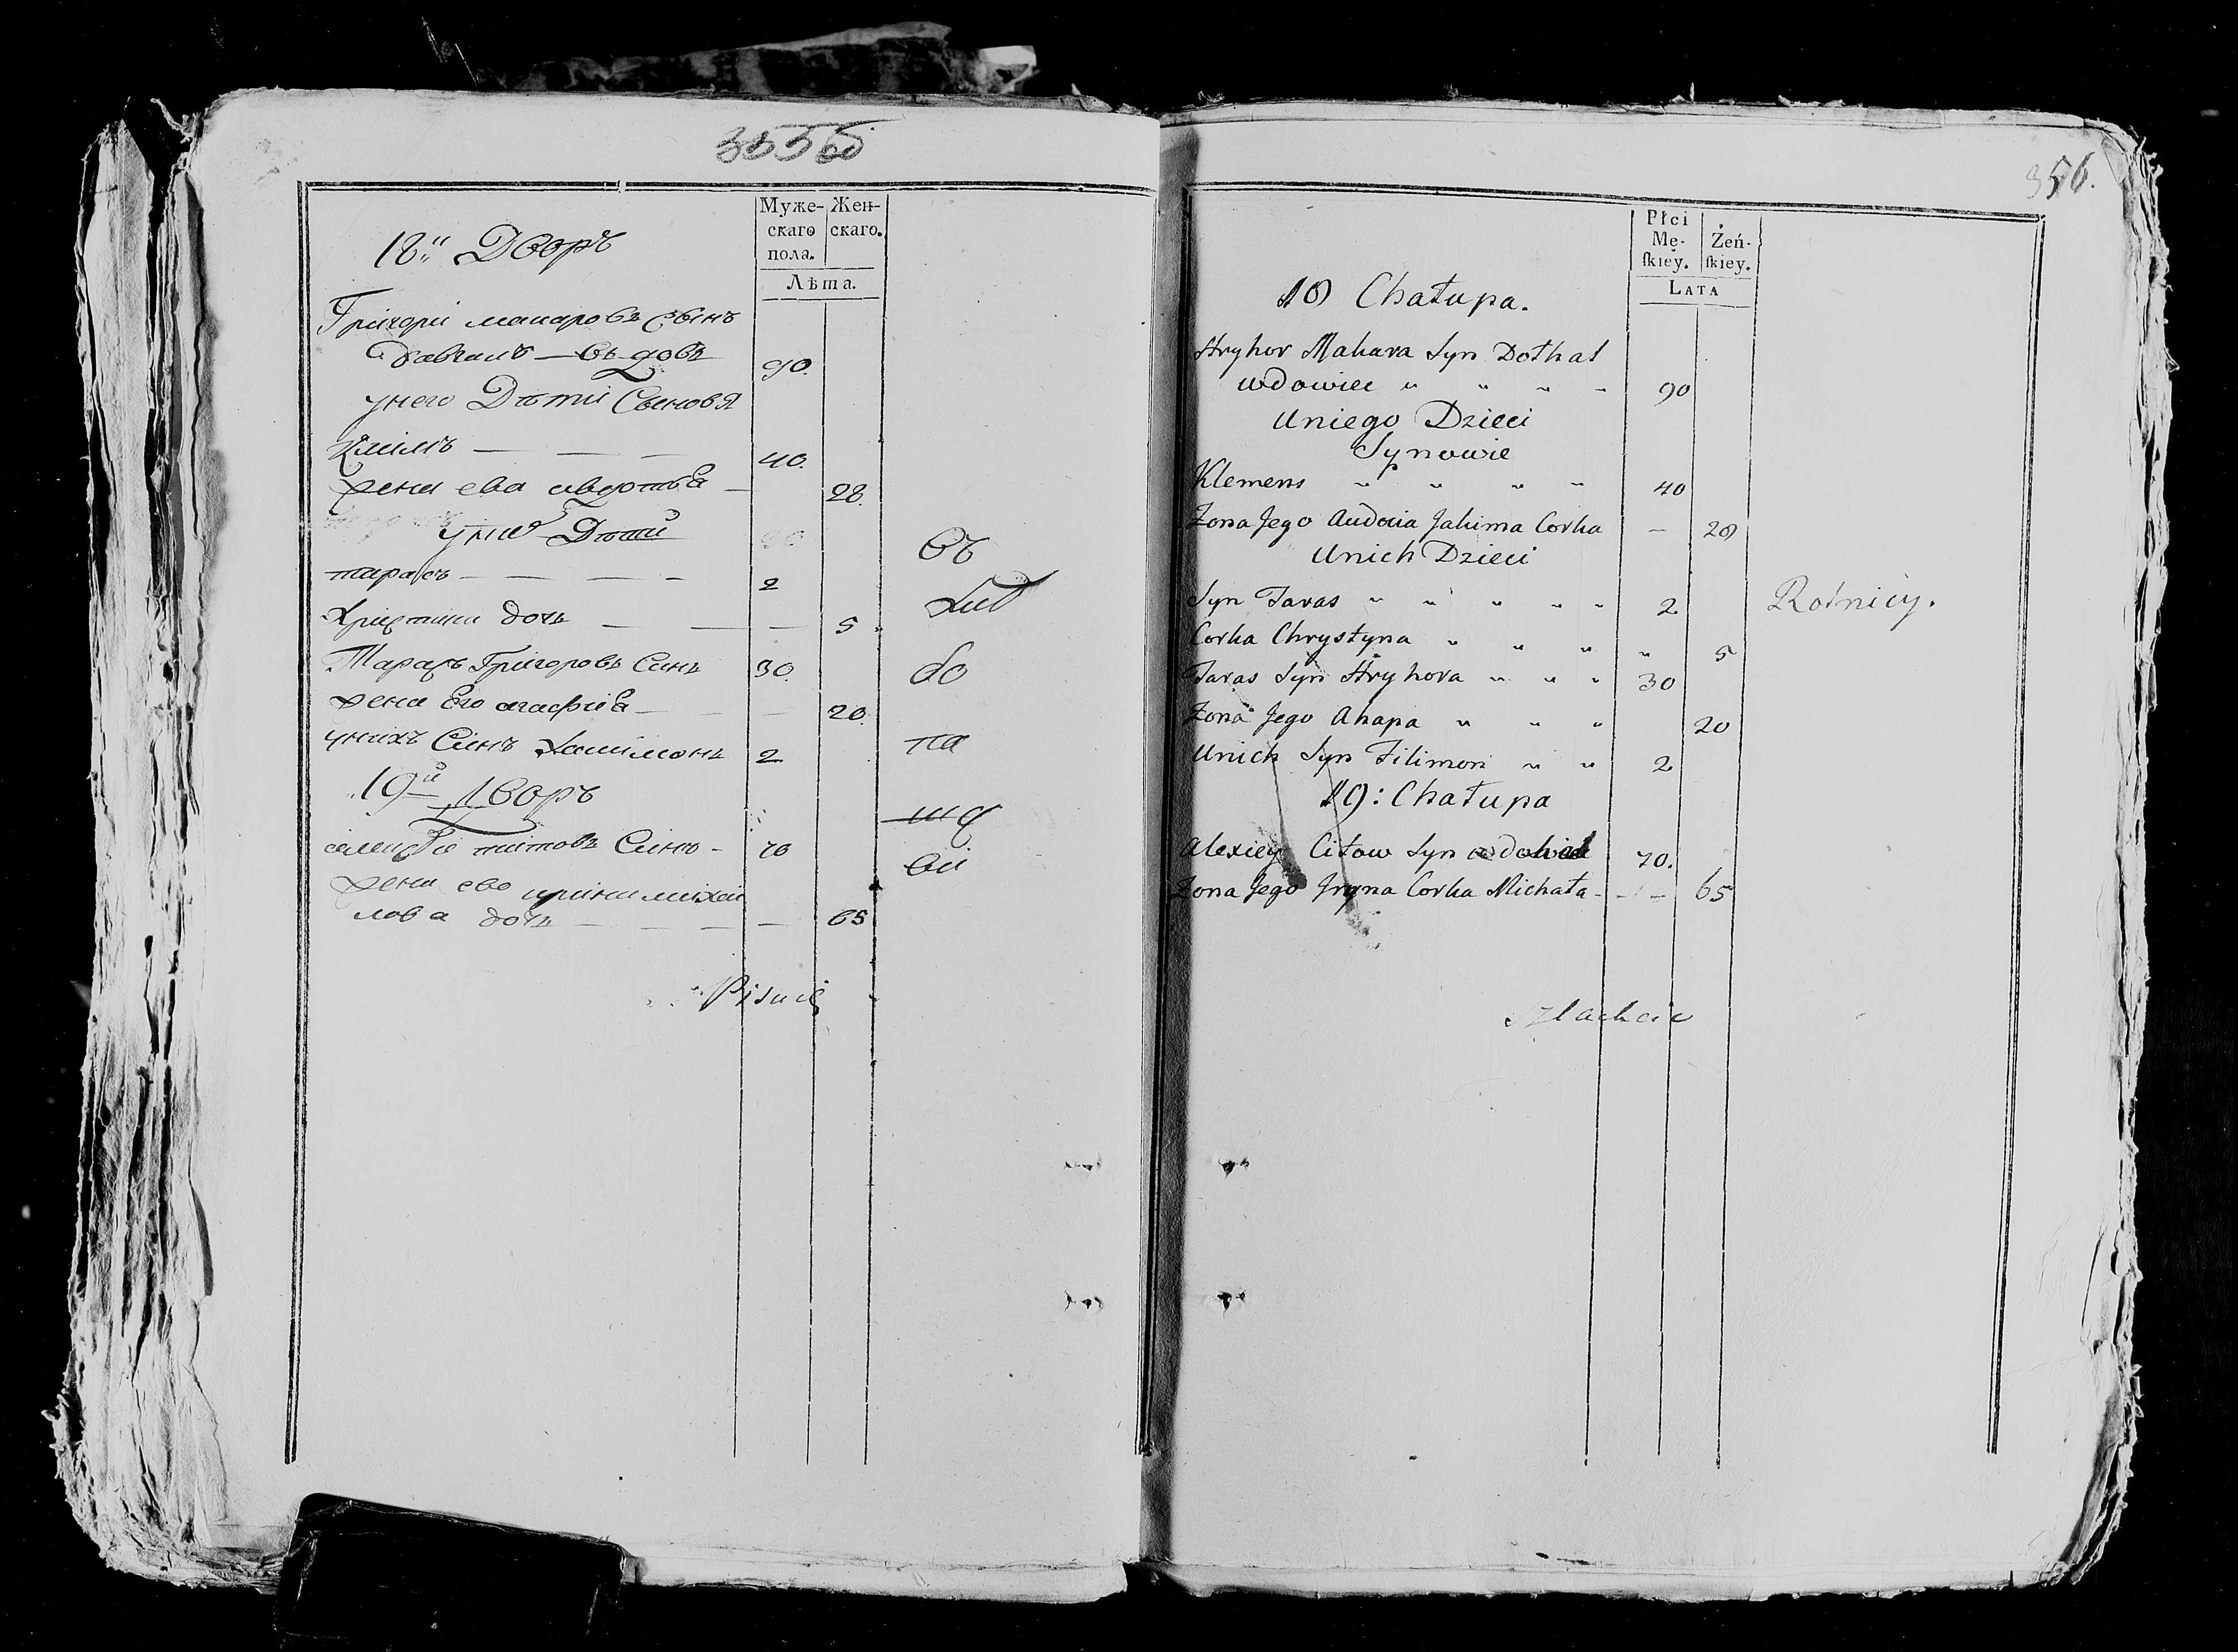 355об
Муже- Жен-
скаго скаго.
пола.
Лѣта.
18й Дворъ
Григори макаровъ Сынъ
Довгалъ — въдовъ 90.
унего Дѣти Сыновя
Климъ — — — 40.
жена ево авдотья — 28.
униъ Дѣти
тарасъ — — — — 2
Христина дочъ — — — 5
Тарасъ Григоровъ Синъ 30.
жена Его агафия — — — 20.
унихъ Синъ 2
19й Дворъ
титовъ Синъ - 70
жена ево ирина михаи
лова дочъ — — — — — 65
въ
до
па
ви
Pisu
356.
Płci
Mę- Żeń-
ſkiey. ſkiey.
LATA
18 Chałupa.
Hryhor Makara Syn Dothal
wdowiec " " " " 90
Uniego Dzieci
Synowie
Klemens " " " " 40
Zona Jego Audocia Jakima Corka — 28
Unich Dzieci
Syn Taras " " " " " 2
Corka Chrystyna " " " " 5
Taras Syn Hryhora " " " 30
Zona Jego Ahapa " " " 20
Unich Syn Filimon " " 2
19: Chałupa
Alexiey Citow Syn 70.
Zona Jego Jryna Corka Michała - - — 65
Rolnicy.
Szlachcic